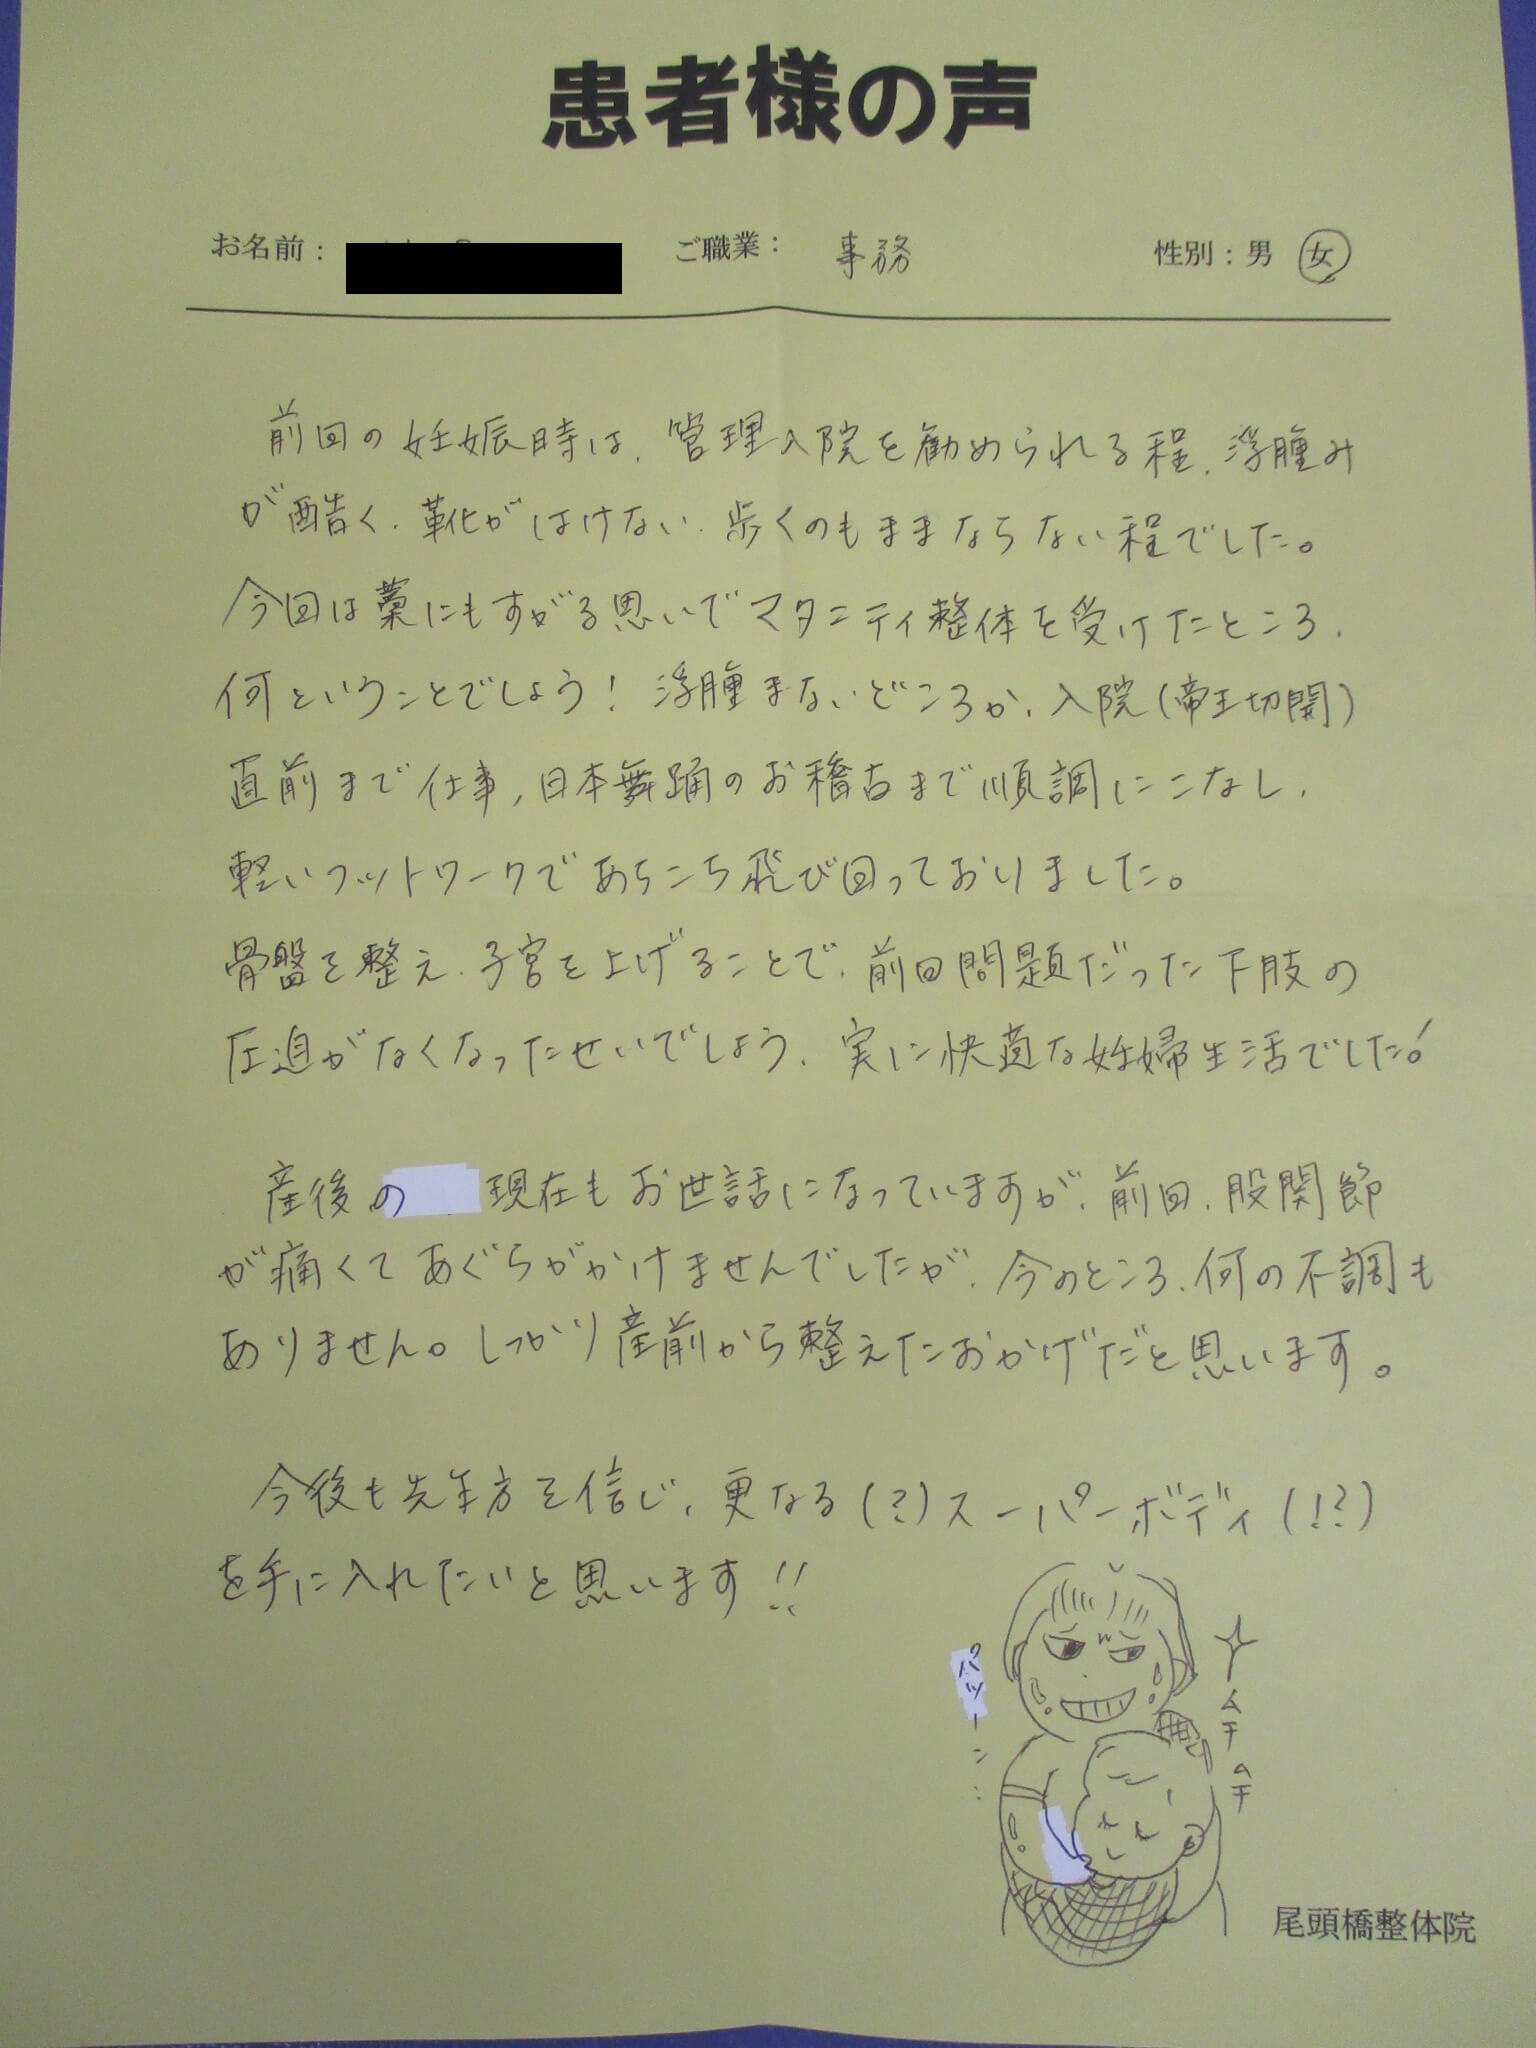 患者様の声
お名前： ご職業： 事務 性別：男 女
前回の妊娠時は、管理入院を勧められる程、浮腫み
が酷く、靴がはけない、歩くのもままならない程でした。
今回は藁にもすがる思いでマタニティ整体を受けたところ、
何ということでしょう！ 浮腫まないどころか、入院（帝王切開）
直前まで仕事，日本舞踊のお稽古まで順調にこなし、
軽いフットワークであちこち飛び回っておりました。
骨盤を整え、子宮を上げることで、前回問題だった下肢の
圧迫がなくなったせいでしょう、実に快適な妊婦生活でした！
産後の 現在もお世話になっていますが、前回、股関節
が痛くてあぐらがかけませんでしたが、今のところ、何の不調も
ありません。しっかり産前から整えたおかげだと思います。
今後も先生方を信じ、更なる（？）スーパーボディ（！？）
を手に入れたいと思います！！
パツーン：
ムチムチ
尾頭橋整体院